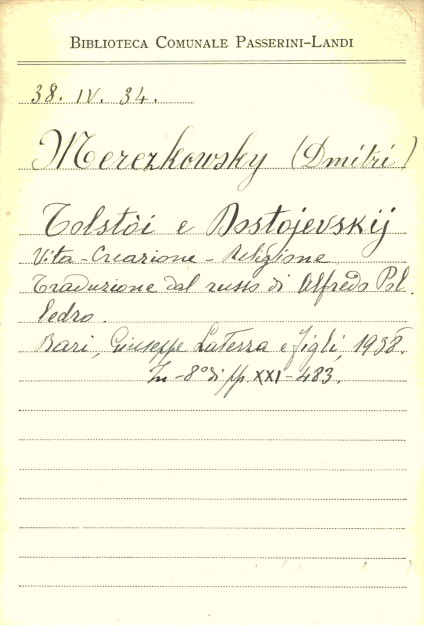 BIBLIOTECA COMUNALE PASSERINI-LANDI
38. IV. 34.
Merezkowsky (Dmitri)
Tolstòi e Dostojevskij
Vita - Creazione - Religione
Traduzione dal russo di Alfredo Pol
ledro.
Bari, Giuseppe Laterza e figli, 1938.
In - 8° di pp. XXI - 483.